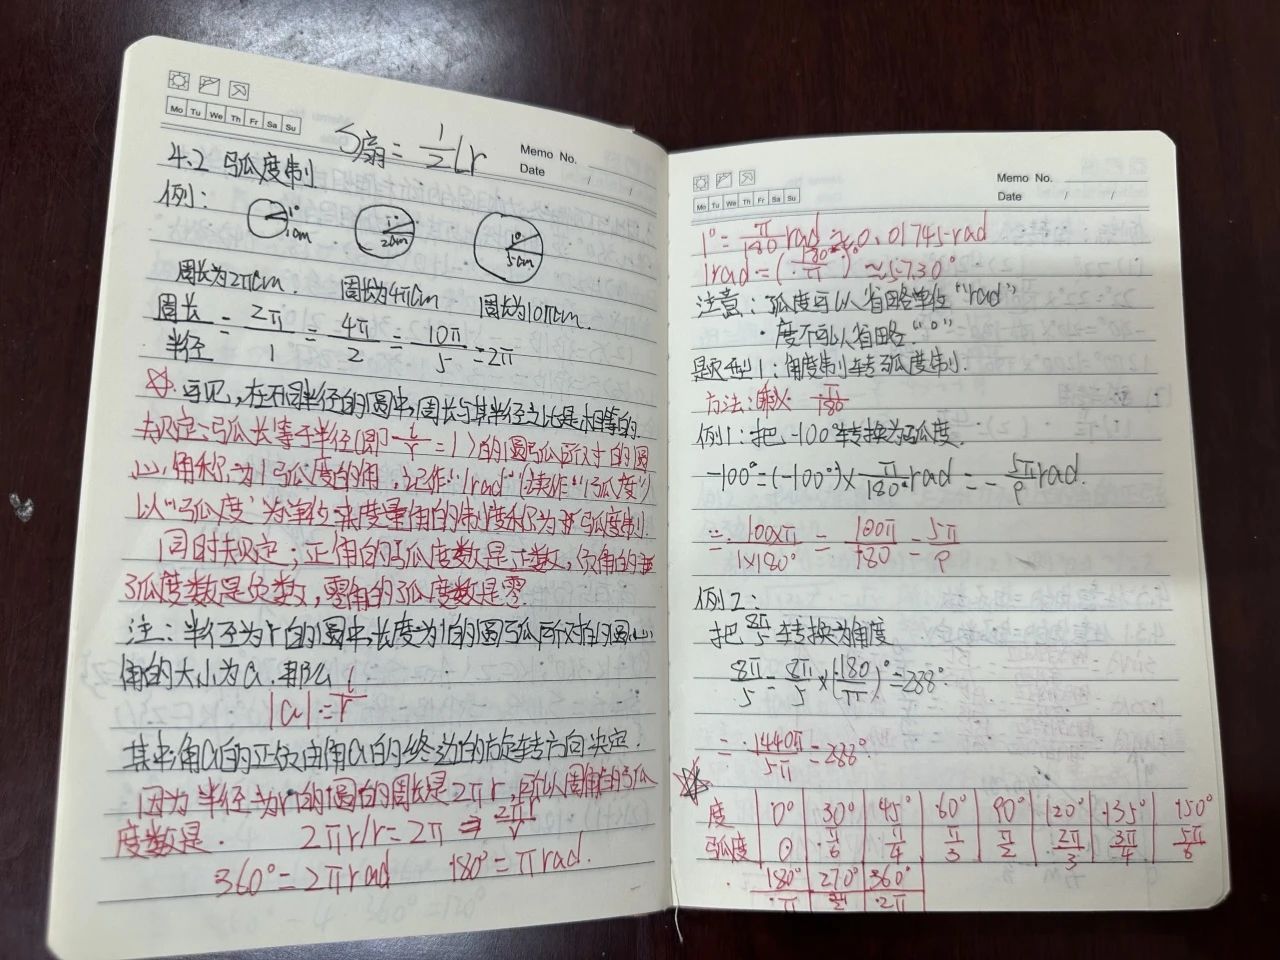 Mo Tu We Th Fr Sa Su
S扇=1/2 Lr
Memo No.
Date / /
4.2 弧度制
例:
1° 1cm
1° 2cm
1° 5cm
周长为2πcm. 周长为4πcm 周长为10πcm.
周长/半径 = 2π/1 = 4π/2 = 10π/5 = 2π
☆. 可见,在不同半径的圆中,周长与其半径之比是相等的.
规定:弧长等于半径(即 l/r =1)的圆弧所对的圆
心角称为1弧度的角,记作"1rad"(读作"1弧度")
以"弧度"为单位来度量角的制度称为弧度制.
同时规定;正角的弧度数是正数,负角的
弧度数是负数,零角的弧度数是零
注:半径为r的圆中,长度为l的圆弧所对的圆心
角的大小为α.那么
|α|=l/r
其中角α的正负由角α的终边的旋转方向决定.
因为半径为r的圆的周长是2πr,所以周角的弧
度数是. 2πr/r=2π ⇒ 2πr/r
360°=2πrad 180°=πrad.
Mo Tu We Th Fr Sa Su
Memo No.
Date / /
1°=π/180 rad≈0.01745rad
1rad=(180°/π)°≈57.30°
注意:弧度可以省略单位"rad"
·度不可以省略"°"
题型1:角度制转弧度制.
方法:乘以 π/180
例1:把-100°转换为弧度.
-100°=(-100°)×π/180° rad=-5π/9 rad.
=100×π/1×180°=100π/180=5π/9
例2:
把8π/5转换为角度
8π/5=8π/5×(180/π)°=288°
=1440π/5π=288°
☆
度 0° 30° 45° 60° 90° 120° 135° 150°
弧度 0 π/6 π/4 π/3 π/2 2π/3 3π/4 5π/6
180° 270° 360°
π 2π